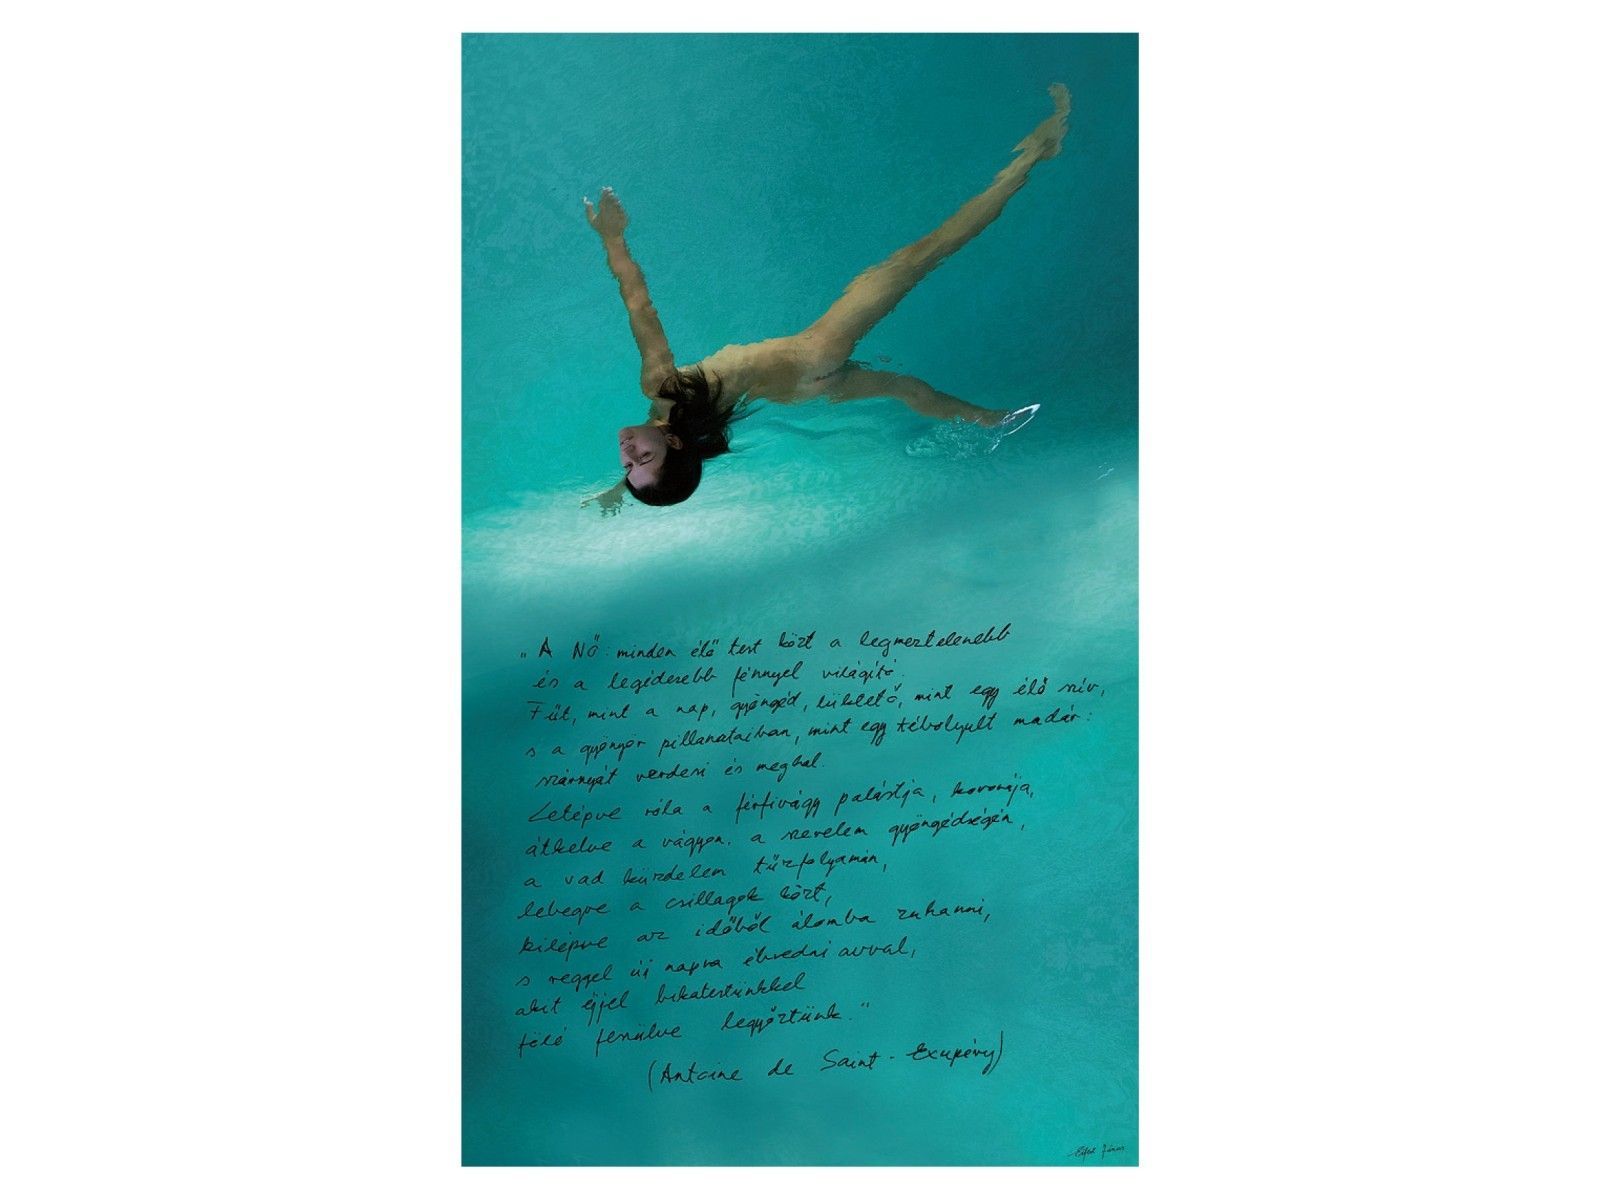 „A NŐ: minden élő test közt a legmeztelenebb
és a legédesebb fénnyel világító.
Fűt, mint a nap, gyöngéd, lüktető, mint egy élő szív,
s a gyönyör pillanataiban, mint egy tébolyult madár:
szárnyát verdesi és meghal.
Letépve róla a férfivágy palástja, koronája,
átkelve a vágyon, a szerelem gyöngédségén,
a vad küzdelem tűzfolyamán,
lebegve a csillagok közt,
kilépve az időből álomba zuhanni,
s reggel új napra ébredni avval,
akit éjjel bikatestünkkel
fölé feszülve legyőztünk."
(Antoine de Saint-Exupéry)
Eifert János